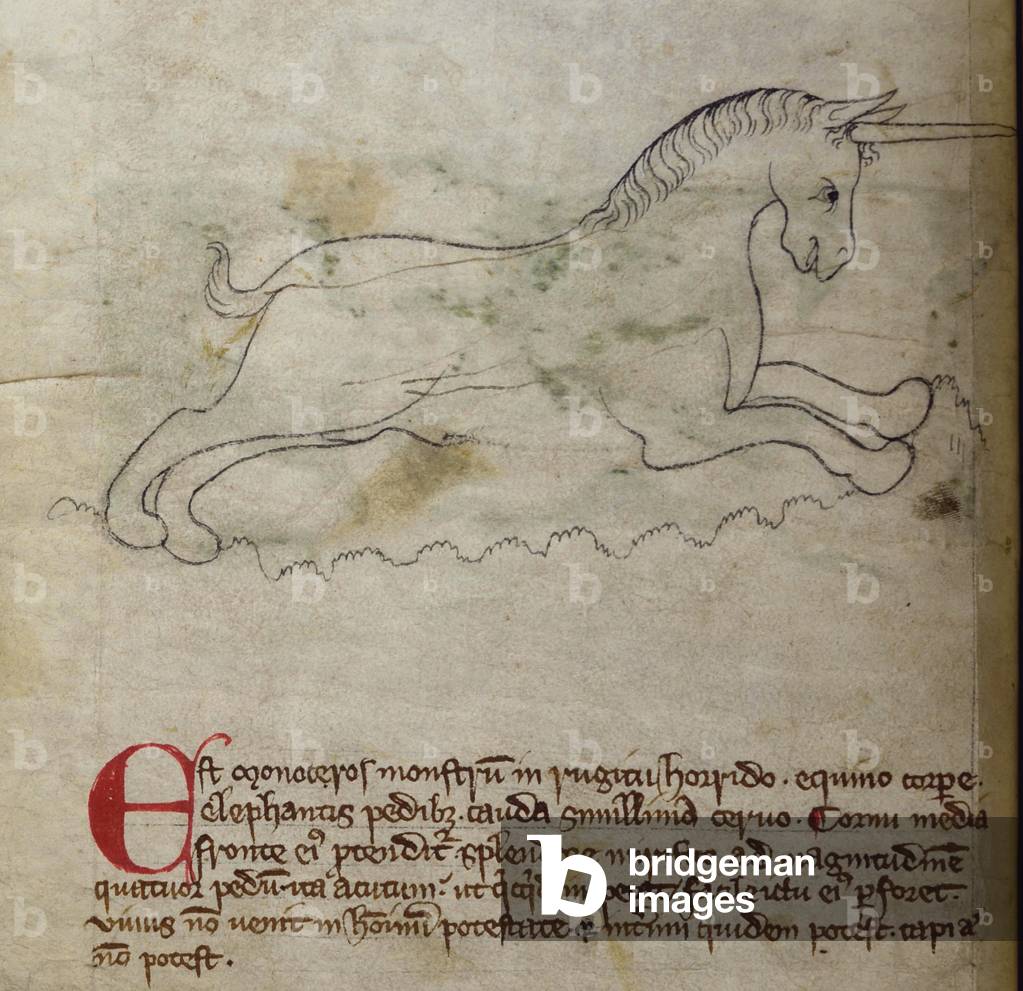 Eſt monoceroſ monſtrū in rugitu horrido · equino corpe ·
elephantis pedibꝫ · cauda ſimillima ceruo · Cornu media
fronte eiꝰ ꝓtendit᷑ ad magnitudinē
quatuor pedū · ita acutum · ut ictu eiꝰ ꝑforet ·
viuus nō uenit in hōinū poteſtate ⁊ intimi quidem poteſt · capi
nō poteſt .
bridgeman
images